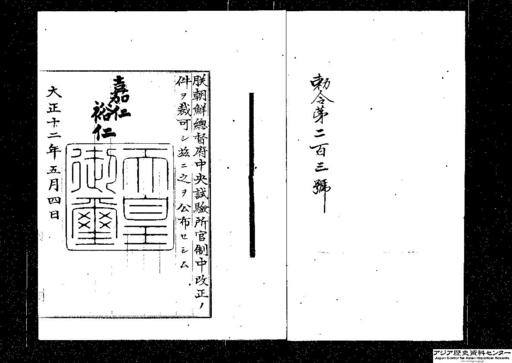 勅令第二百三號
朕朝鮮總督府中央試驗所官制中改正ノ
件ヲ裁可シ茲ニ之ヲ公布セシム
嘉仁
裕仁
天皇
御璽
大正十二年五月四日
アジア歴史資料センター
Japan Center for Asian Historical Records